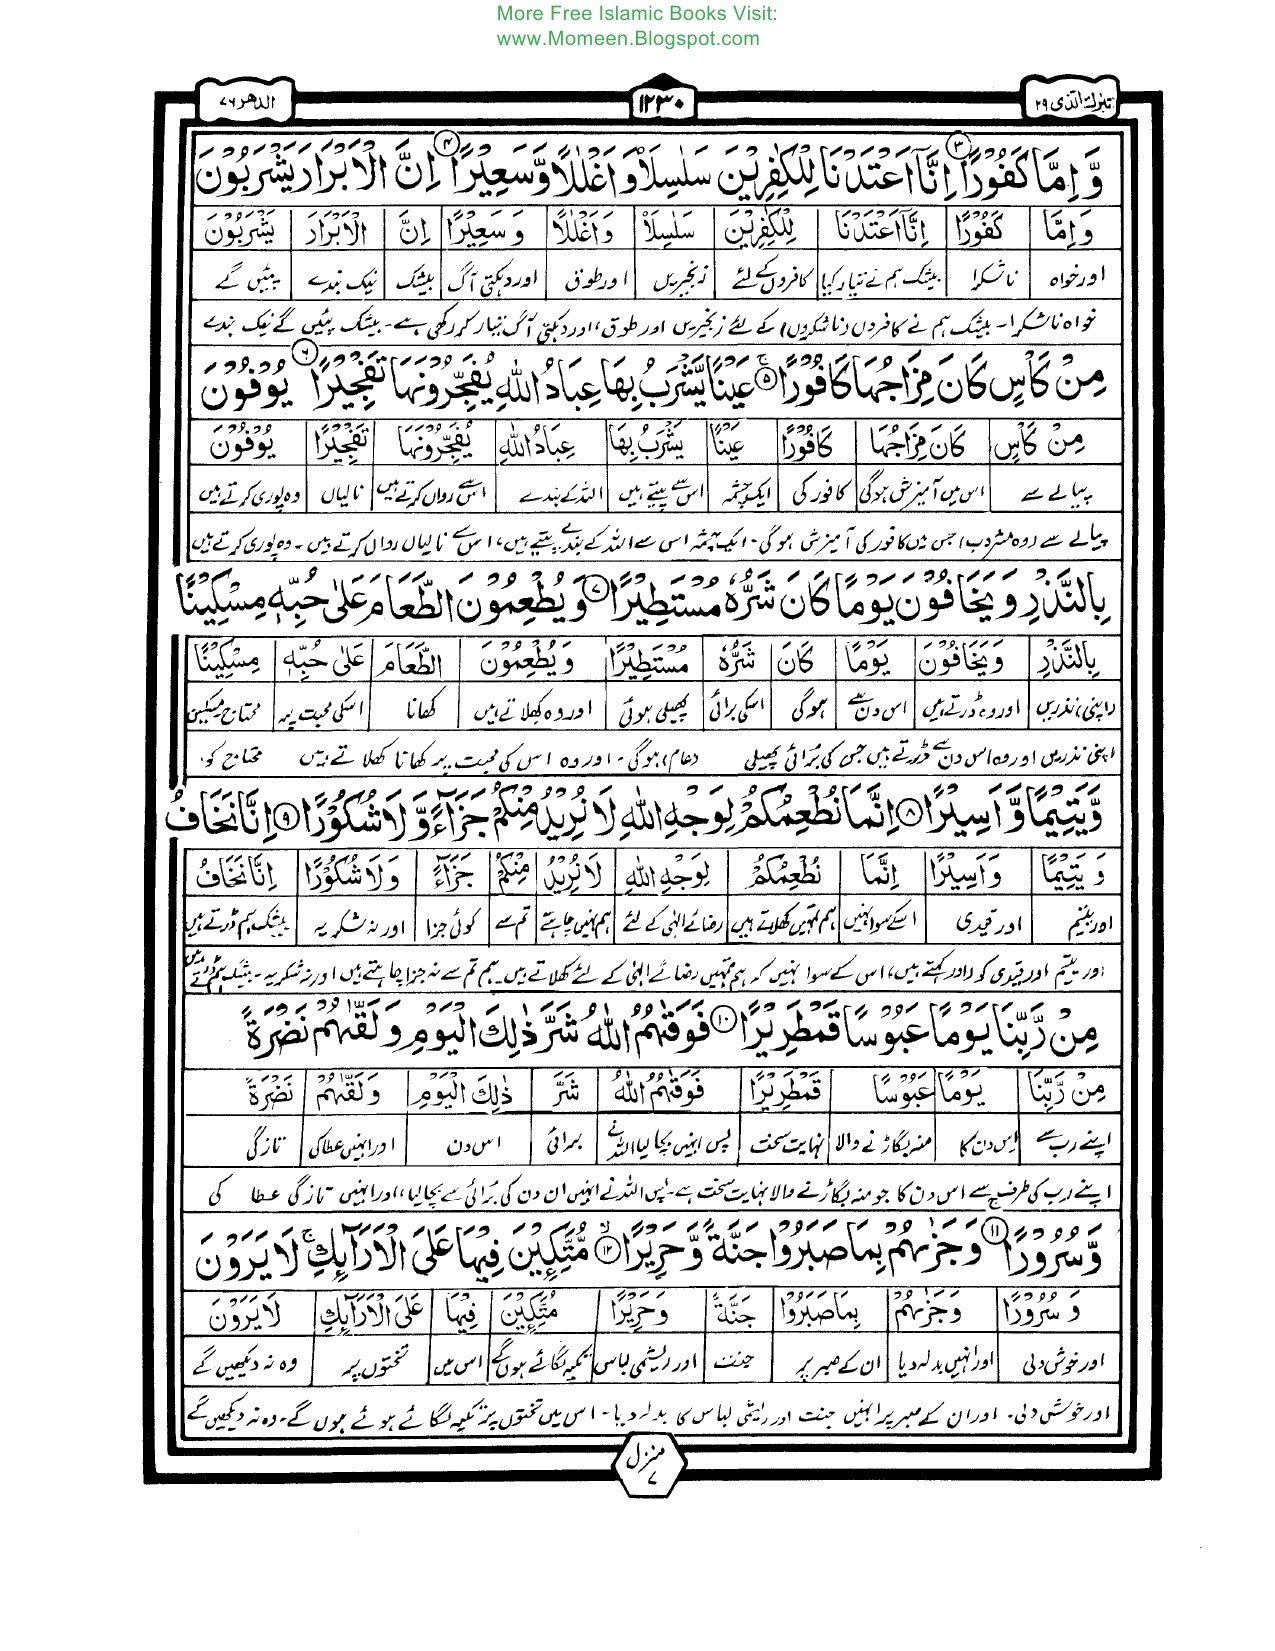 More Free Islamic Books Visit:
www.Momeen.Blogspot.com
تبٰرك الذی ۲۹
۱۲۳۰
الدهر ۷۶
وَّ اِمَّا كَفُوْرًا ۳ اِنَّاۤ اَعْتَدْنَا لِلْكٰفِرِیْنَ سَلٰسِلَا۟ وَ اَغْلٰلًا وَّ سَعِیْرًا ۴ اِنَّ الْاَبْرَارَ یَشْرَبُوْنَ
وَ اِمَّا كَفُوْرًا اِنَّاۤ اَعْتَدْنَا لِلْكٰفِرِیْنَ سَلٰسِلَا۟ وَ اَغْلٰلًا وَ سَعِیْرًا اِنَّ الْاَبْرَارَ یَشْرَبُوْنَ
اور خواہ ناشکرا بیشک ہم نے تیار کیا کافروں کے لئے زنجیریں اور طوق اور دہکتی آگ بیشک نیک بندے پیئیں گے
خواہ ناشکرا۔ بیشک ہم نے کافروں (ناشکروں) کے لئے زنجیریں اور طوق، اور دہکتی آگ تیار کر رکھی ہے۔ بیشک پئیں گے نیک بندے
مِنْ كَاْسٍ كَانَ مِزَاجُهَا كَافُوْرًا ۵ عَیْنًا یَّشْرَبُ بِهَا عِبَادُ اللّٰهِ یُفَجِّرُوْنَهَا تَفْجِیْرًا ۶ یُوْفُوْنَ
مِنْ كَاْسٍ كَانَ مِزَاجُهَا كَافُوْرًا عَیْنًا یَشْرَبُ بِهَا عِبَادُ اللّٰهِ یُفَجِّرُوْنَهَا تَفْجِیْرًا یُوْفُوْنَ
پیالے سے اس میں آمیزش ہوگی کافور کی ایک چشمہ اس سے پیتے ہیں اللہ کے بندے اسے رواں کرتے ہیں نالیاں وہ پوری کرتے ہیں
پیالے سے (وہ مشروب) جس میں کافور کی آمیزش ہوگی۔ ایک چشمہ اس سے اللہ کے بندے پیتے ہیں، اس سے نالیاں رواں کرتے ہیں۔ وہ پوری کرتے ہیں
بِالنَّذْرِ وَ یَخَافُوْنَ یَوْمًا كَانَ شَرُّهٗ مُسْتَطِیْرًا ۷ وَ یُطْعِمُوْنَ الطَّعَامَ عَلٰی حُبِّهٖ مِسْكِیْنًا
بِالنَّذْرِ وَ یَخَافُوْنَ یَوْمًا كَانَ شَرُّهٗ مُسْتَطِیْرًا وَ یُطْعِمُوْنَ الطَّعَامَ عَلٰی حُبِّهٖ مِسْكِیْنًا
(اپنی) نذریں اور وہ ڈرتے ہیں اس دن سے ہوگی اسکی برائی پھیلی ہوئی اور وہ کھلاتے ہیں کھانا اسکی محبت پر محتاج مسکین
اپنی نذریں اور وہ اس دن سے ڈرتے ہیں جس کی برائی پھیلی (عام) ہوگی۔ اور وہ اس کی محبت پر کھانا کھلاتے ہیں محتاج کو
وَّ یَتِیْمًا وَّ اَسِیْرًا ۸ اِنَّمَا نُطْعِمُكُمْ لِوَجْهِ اللّٰهِ لَا نُرِیْدُ مِنْكُمْ جَزَآءً وَّ لَا شُكُوْرًا ۹ اِنَّا نَخَافُ
وَ یَتِیْمًا وَ اَسِیْرًا اِنَّمَا نُطْعِمُكُمْ لِوَجْهِ اللّٰهِ لَا نُرِیْدُ مِنْكُمْ جَزَآءً وَلَا شُكُوْرًا اِنَّا نَخَافُ
اور یتیم اور قیدی اسکے سوا نہیں ہم تمہیں کھلاتے ہیں رضائے الٰہی کے لئے ہم نہیں چاہتے تم سے کوئی جزا اور نہ شکریہ بیشک ہم ڈرتے ہیں
اور یتیم اور قیدی کو (اور کہتے ہیں) اس کے سوا نہیں کہ ہم تمہیں رضائے الٰہی کے لئے کھلاتے ہیں۔ ہم تم سے نہ جزا چاہتے ہیں اور نہ شکریہ۔ بیشک ہم ڈرتے ہیں
مِنْ رَّبِّنَا یَوْمًا عَبُوْسًا قَمْطَرِیْرًا ۱۰ فَوَقٰهُمُ اللّٰهُ شَرَّ ذٰلِكَ الْیَوْمِ وَ لَقّٰهُمْ نَضْرَةً
مِنْ رَّبِّنَا یَوْمًا عَبُوْسًا قَمْطَرِیْرًا فَوَقٰهُمُ اللّٰهُ شَرَّ ذٰلِكَ الْیَوْمِ وَ لَقّٰهُمْ نَضْرَةً
اپنے رب سے اس دن کا منہ بگاڑنے والا نہایت سخت پس انہیں بچا لیا اللہ نے برائی اس دن اور انہیں عطا کی تازگی
اپنے رب کی طرف سے اس دن کا جو منہ بگاڑنے والا نہایت سخت ہے۔ پس اللہ نے انہیں اس دن کی برائی سے بچا لیا، اور انہیں تازگی عطا کی
وَّ سُرُوْرًا ۱۱ وَ جَزٰىهُمْ بِمَا صَبَرُوْا جَنَّةً وَّ حَرِیْرًا ۱۲ مُّتَّكِـِٕیْنَ فِیْهَا عَلَی الْاَرَآىِٕكِ لَا یَرَوْنَ
وَ سُرُوْرًا وَ جَزٰىهُمْ بِمَا صَبَرُوْا جَنَّةً وَ حَرِیْرًا مُتَّكِـِٕیْنَ فِیْهَا عَلَی الْاَرَآىِٕكِ لَا یَرَوْنَ
اور خوش دلی اور انہیں بدلہ دیا ان کے صبر پر جنت اور ریشمی لباس تکیہ لگائے ہوں گے اس میں تختوں پر وہ نہ دیکھیں گے
اور خوش دلی۔ اور ان کے صبر پر انہیں جنت اور ریشمی لباس کا بدلہ دیا۔ اس میں تختوں پر تکیہ لگائے ہوئے ہوں گے۔ وہ نہ دیکھیں گے
منزل
۷